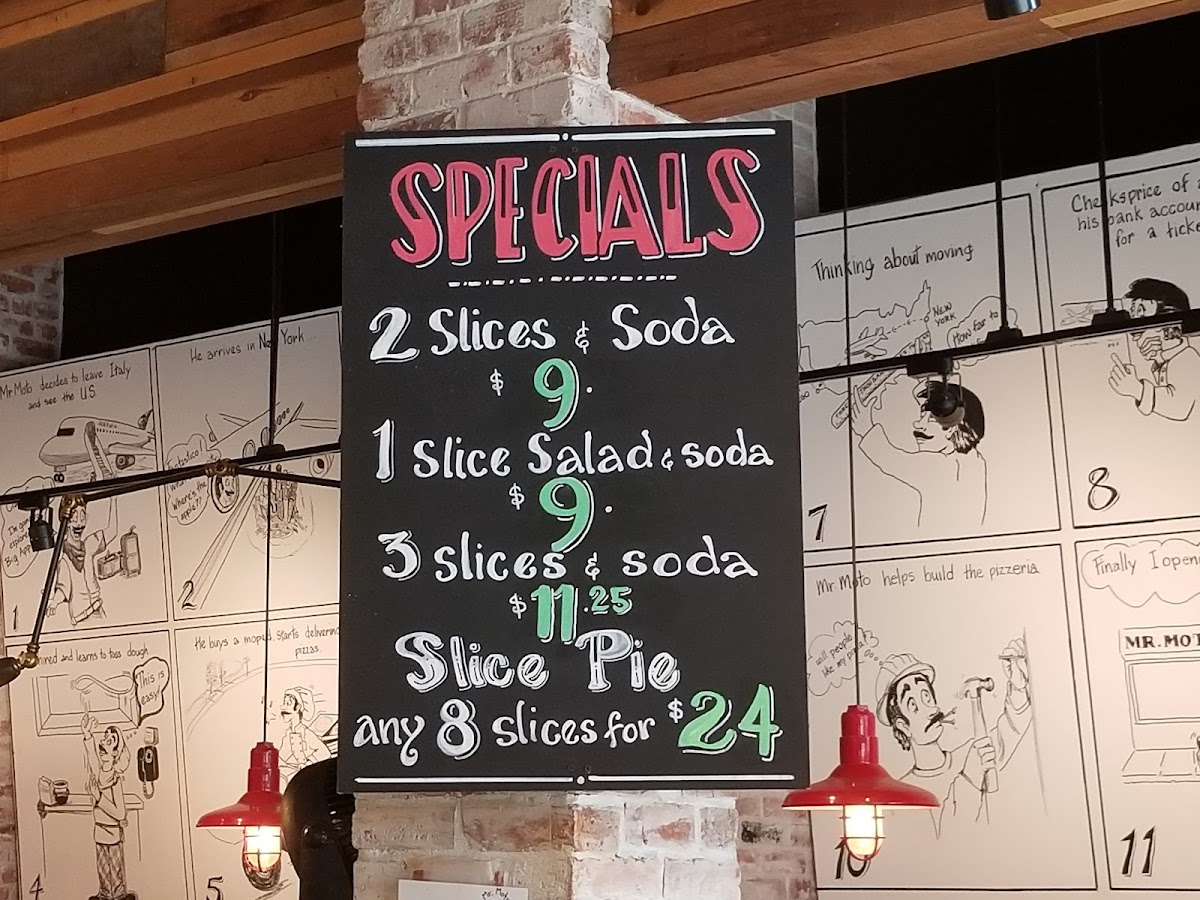 SPECIALS
2 Slices & Soda
$ 9.
1 Slice Salad & soda
$ 9.
3 slices & soda
$11.25
Slice Pie
any 8 slices for $24
Mr. Moto decides to leave Italy
and see the U.S.
Big App
1
He arrives in New York...
Fantastico!
Where's the
apple??
hired and learns to toss dough
"This is
easy"
4
He buys a moped, starts delivering
pizzas.
5
Thinking about moving
NEW
YORK
How far to
7
Checks price of a
his bank accoun
for a ticke
8
Mr. Moto helps build the pizzeria
I will people
like my pizza
10
Finally I open
MR. MOT
11